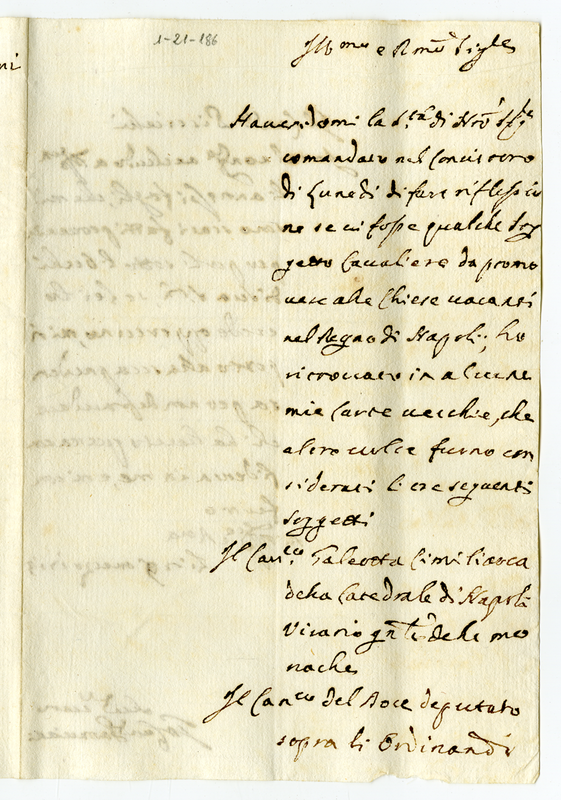 1-21-186
Ill.mo e R.mo Sig.re
Havendomi la S.tà di Nrõ Sig.re
comandato nel Concistoro
di Lunedì di fare riflessio
ne se vi fosse qualche Sog
getto Cavaliere da promo
vere alle Chiese vacanti
nel Regno di Napoli; ho
ritrovato in alcune
mie Carte vecchie, che
altre volte furno con
siderati li tre seguenti
soggetti
Il Can.co Galeotta Cimiliarca
della Catedrale di Napoli
Vicario gn̄le delle mo
nache
Il Can.co del Doce deputato
sopra li Ordinandi